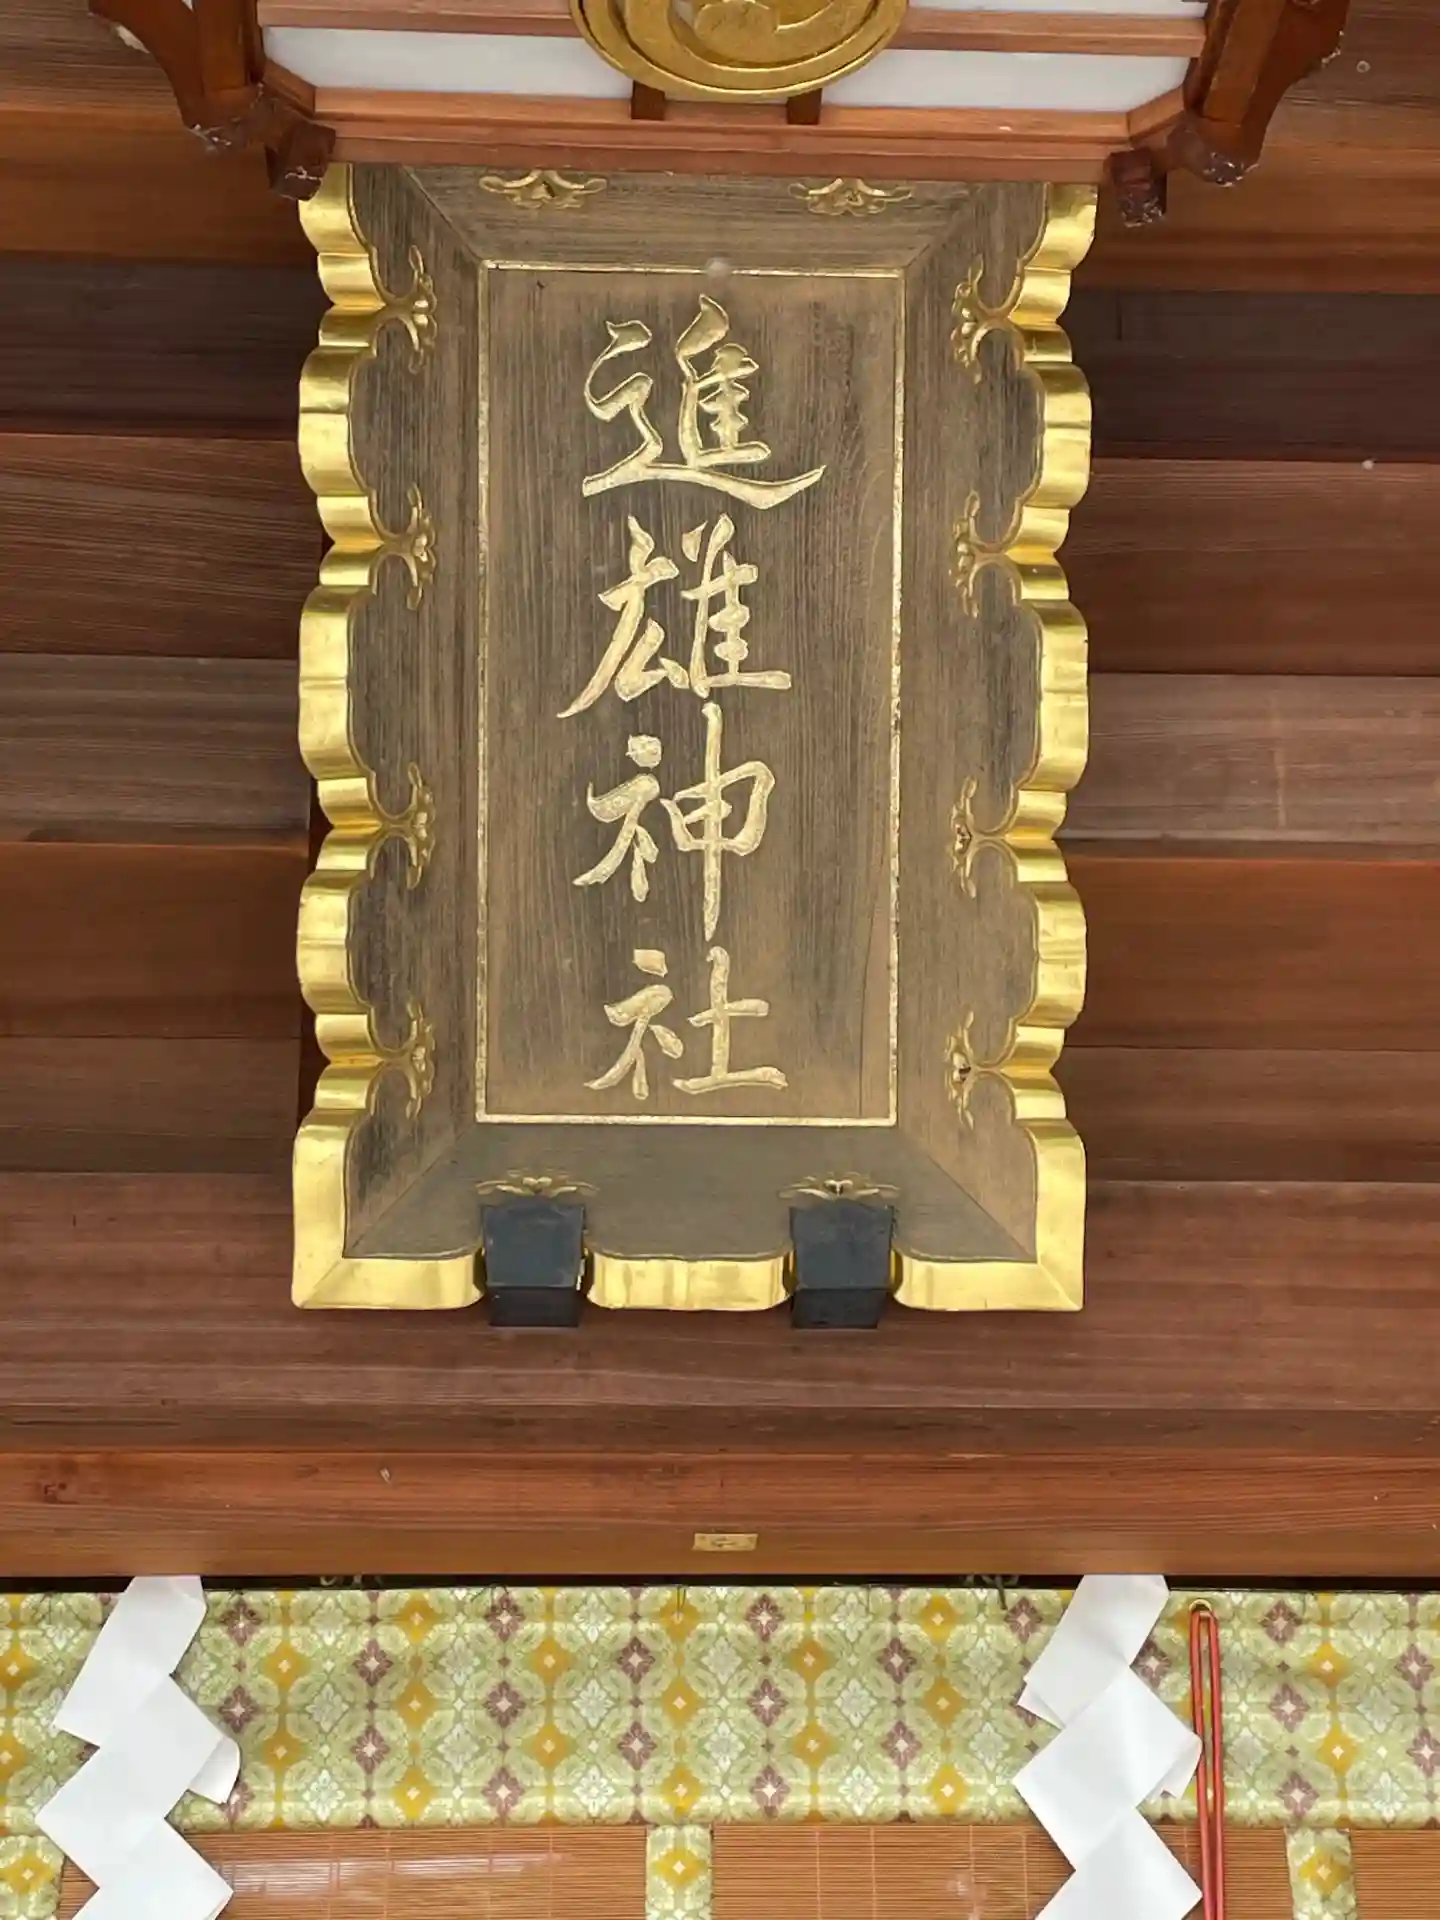 進雄神社